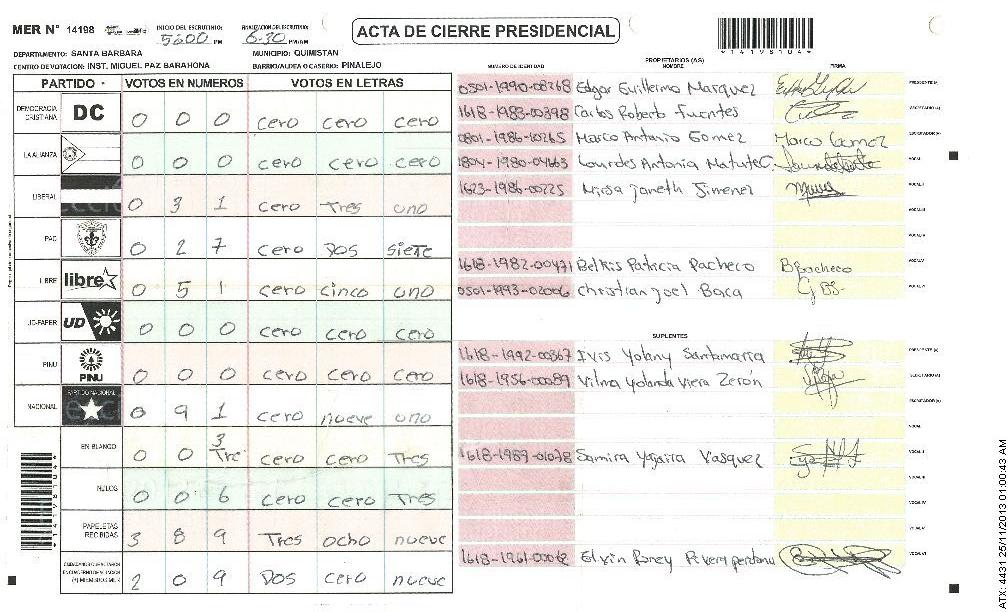 MER N° 14198 INICIO DEL ESCRUTINIO: 5:00 PM FINALIZACION DEL ESCRUTINIO: 6:30 PM/AM ACTA DE CIERRE PRESIDENCIAL
*14198104*
DEPARTAMENTO: SANTA BARBARA MUNICIPIO: QUIMISTAN
CENTRO DE VOTACION: INST. MIGUEL PAZ BARAHONA BARRIO/ALDEA O CASERIO: PINALEJO
PARTIDO VOTOS EN NUMEROS VOTOS EN LETRAS
DEMOCRACIA CRISTIANA DC 0 0 0 cero cero cero
LA ALIANZA 0 0 0 cero cero cero
LIBERAL 0 3 1 cero Tres uno
PAC 0 2 7 cero DOS sieTe
LIBRE libre 0 5 1 cero cinco uno
UD-FAPER UD 0 0 0 cero cero cero
PINU PINU 0 0 0 cero cero cero
NACIONAL PARTIDO NACIONAL 0 9 1 cero nueve uno
EN BLANCO 0 0 3 Tre cero cero Tres
NULOS 0 0 6 cero cero Tres
PAPELETAS RECIBIDAS 3 8 9 Tres ocho nueve
2 0 9 DOS cero nueve
PROPIETARIOS (AS)
NUMERO DE IDENTIDAD NOMBRE FIRMA
0501-1990-08268 Edgar Guillermo Marquez PRESIDENTE (A)
1618-1983-00398 Carlos Roberto Fuentes SECRETARIO (A)
0801-1986-10265 Marco Antonio Gomez Marco Gomez ESCRUTADOR (A)
1804-1980-04663 Lourdes Antonia Matute C. VOCAL I
1623-1986-00225 Mirsa Janeth Jimenez VOCAL II
VOCAL III
VOCAL IV
1618-1982-00471 Belkis Patricia Pacheco B Pacheco VOCAL V
0501-1993-02006 Christian Joel Baca VOCAL VI
SUPLENTES
1618-1992-00367 Ivis Yolany Santamaria PRESIDENTE (A)
1618-1956-00089 Vilma Yolanda Viera Zerón SECRETARIO (A)
ESCRUTADOR (A)
VOCAL I
1618-1989-01078 Samira Yajaira Vasquez VOCAL II
VOCAL III
VOCAL IV
VOCAL V
1618-1961-00062 Elvin VOCAL VI
ATX: 4431 25/11/2013 01:00:43 AM